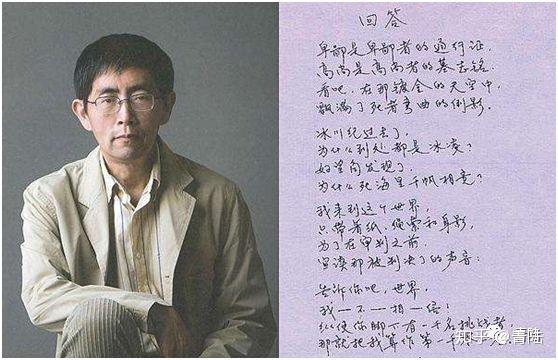 回答
卑鄙是卑鄙者的通行证,
高尚是高尚者的墓志铭。
看吧,在那镀金的天空中,
飘满了死者弯曲的倒影。
冰川纪过去了,
为什么到处都是冰凌?
好望角发现了,
为什么死海里千帆相竞?
我来到这个世界,
只带着纸、绳索和身影,
为了在审判之前,
宣读那被判决了的声音:
告诉你吧,世界,
我—不—相—信!
纵使你脚下有一千名挑战者,
那就把我算作第一千
知乎 @菁陆